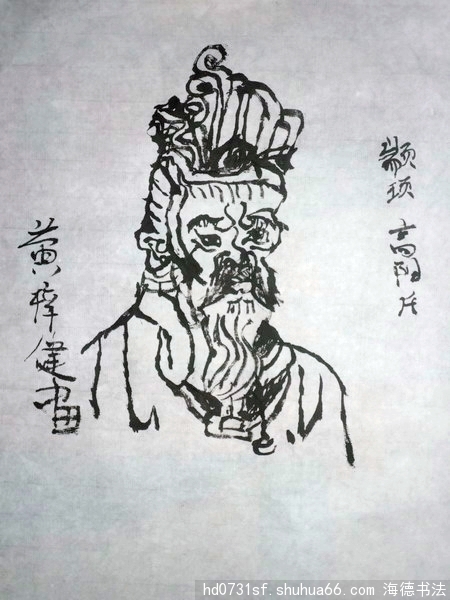 颛顼 高阳氏
黄健画
hd0731sf.shuhua66.com 海德书法